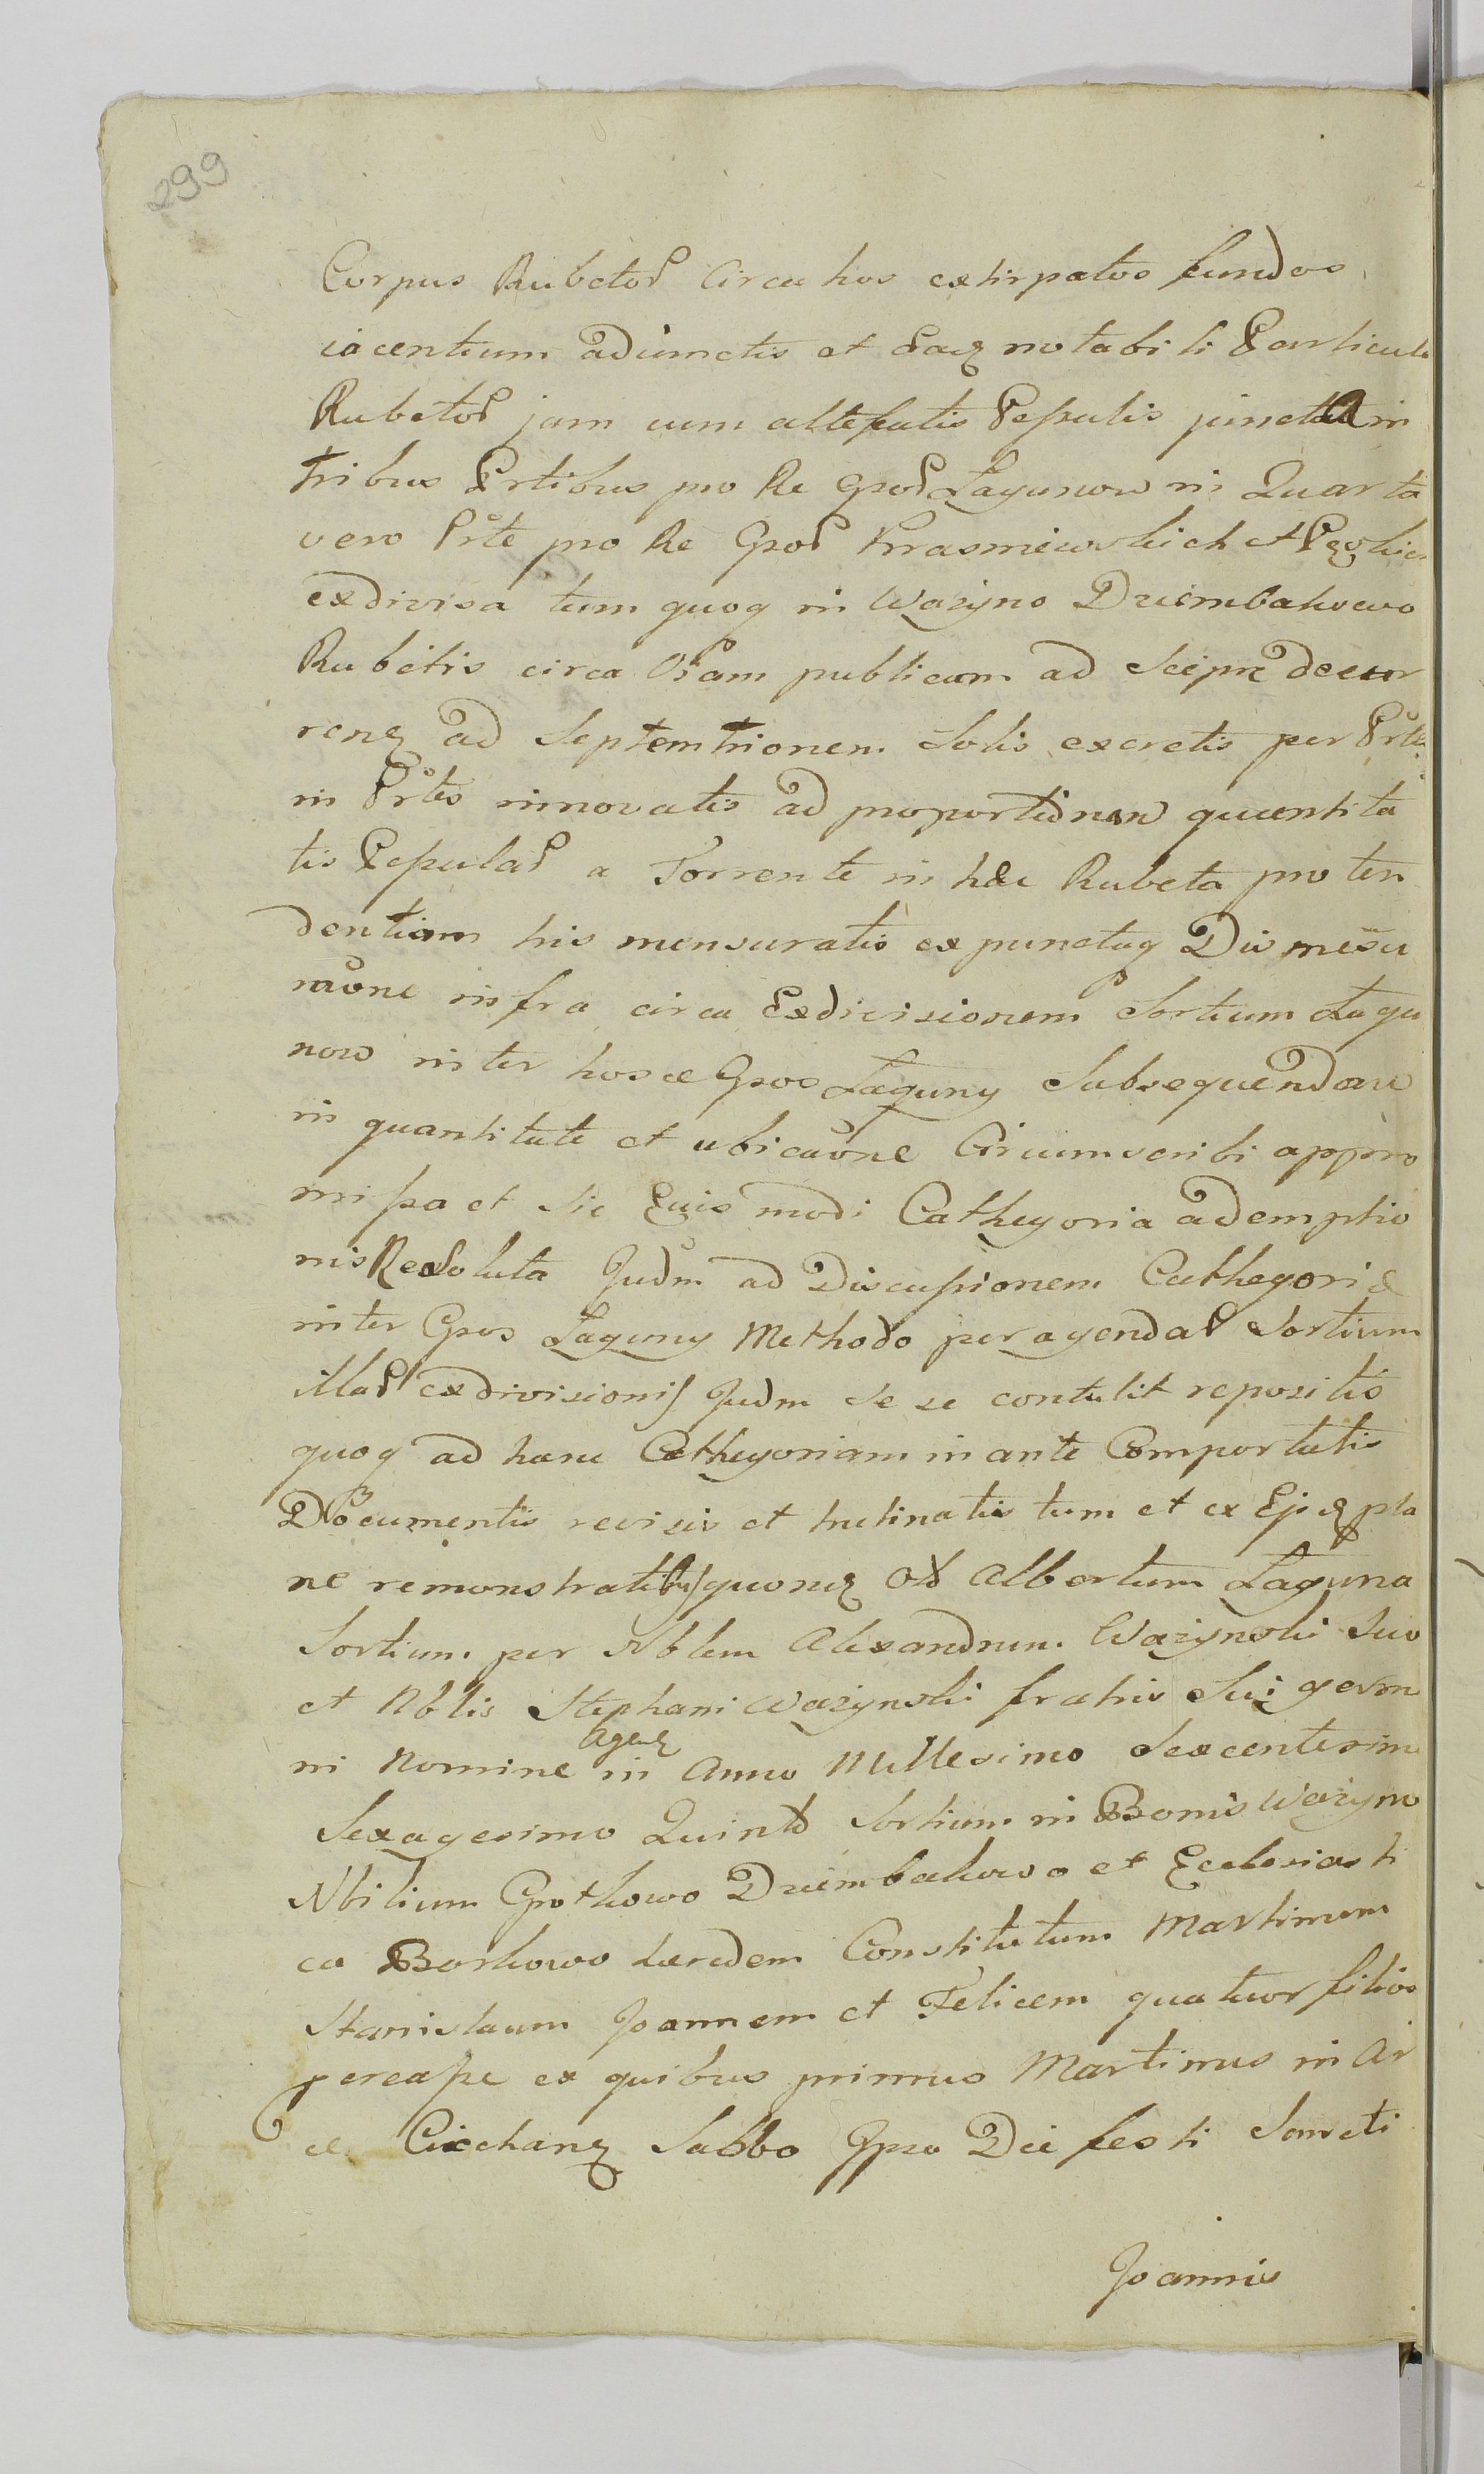 299
Corpus Rubetoꝝ Circa hos extirpatos fundos
iacentium adiunctis et hacꝫ notabili Particula
Rubetoꝝ jam cum attefatis Pessulis juncta in
tribus Prtibus pro Re Gnoꝝ Łagunow in Quarta
vero Prte pro Re Gnoꝝ Krasniewskich et
exdivisa tum quoq in Wazyno Dziembakowo
Rubetis circa Viam publicam ad decur
renꝫ ad Septemtrionem Solis excretis per Prtes
in Prtes innovatis ad proportionem quantita
tis Pessulaꝝ a Torrente in hæc Rubeta proten
dentiam his mensuratis expunctaq Dismesu
raõne infra circa Exdivisionem Sortium Łagu
now inter hosce Gnos Łaguny Subsequendam
in quantitate et ubicaõne Circumscribi appro
missa et sic Ejusmodi Cathegoria ademptio
nis Resoluta Judm ad Discussionem Cathegoriæ
inter Gnos Łaguny Methodo peragendaꝝ Sortium
illaꝝ exdivisionis Judm se se contulit repositis
quoq ad hanc Cathegoriam in ante Comportatis
Documentis revisis et trutinatis tum et ex Ejsꝫ pla
ne remonstratibus quoniꝫ Albertum Łaguna
Sortium per Nblem Alexandrum Wazynski Suo
et Nblis Stephani Wazynski fratris Sui germa
ni Nomine agenꝫ in Anno Millesimo Sexcentesimo
Sexagesimo Quinto Sortium in Bonis Wazyno
Nbilium Grothowo Dziembakowo et Ecclesiasti
ca Borkowo hæredem Constitutum Martinum
Stanislaum Joannem et Felicem quatuor filios
percasse ex quibus primus Martinus in Ar
ce Ciechanꝫ Sabbo Ipso Die festi Sancti
Joannis